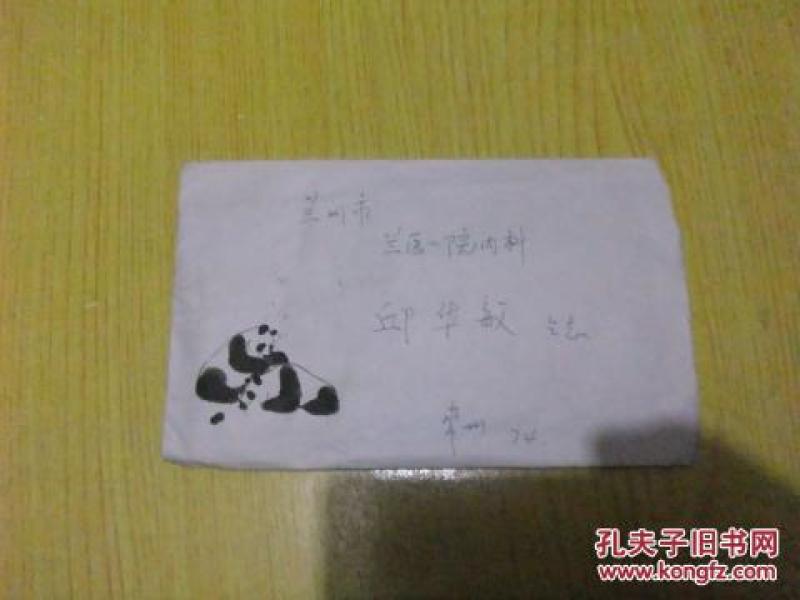 兰州市
兰医一院内科
邱华敏 同志
常州
孔夫子旧书网
www.kongfz.com